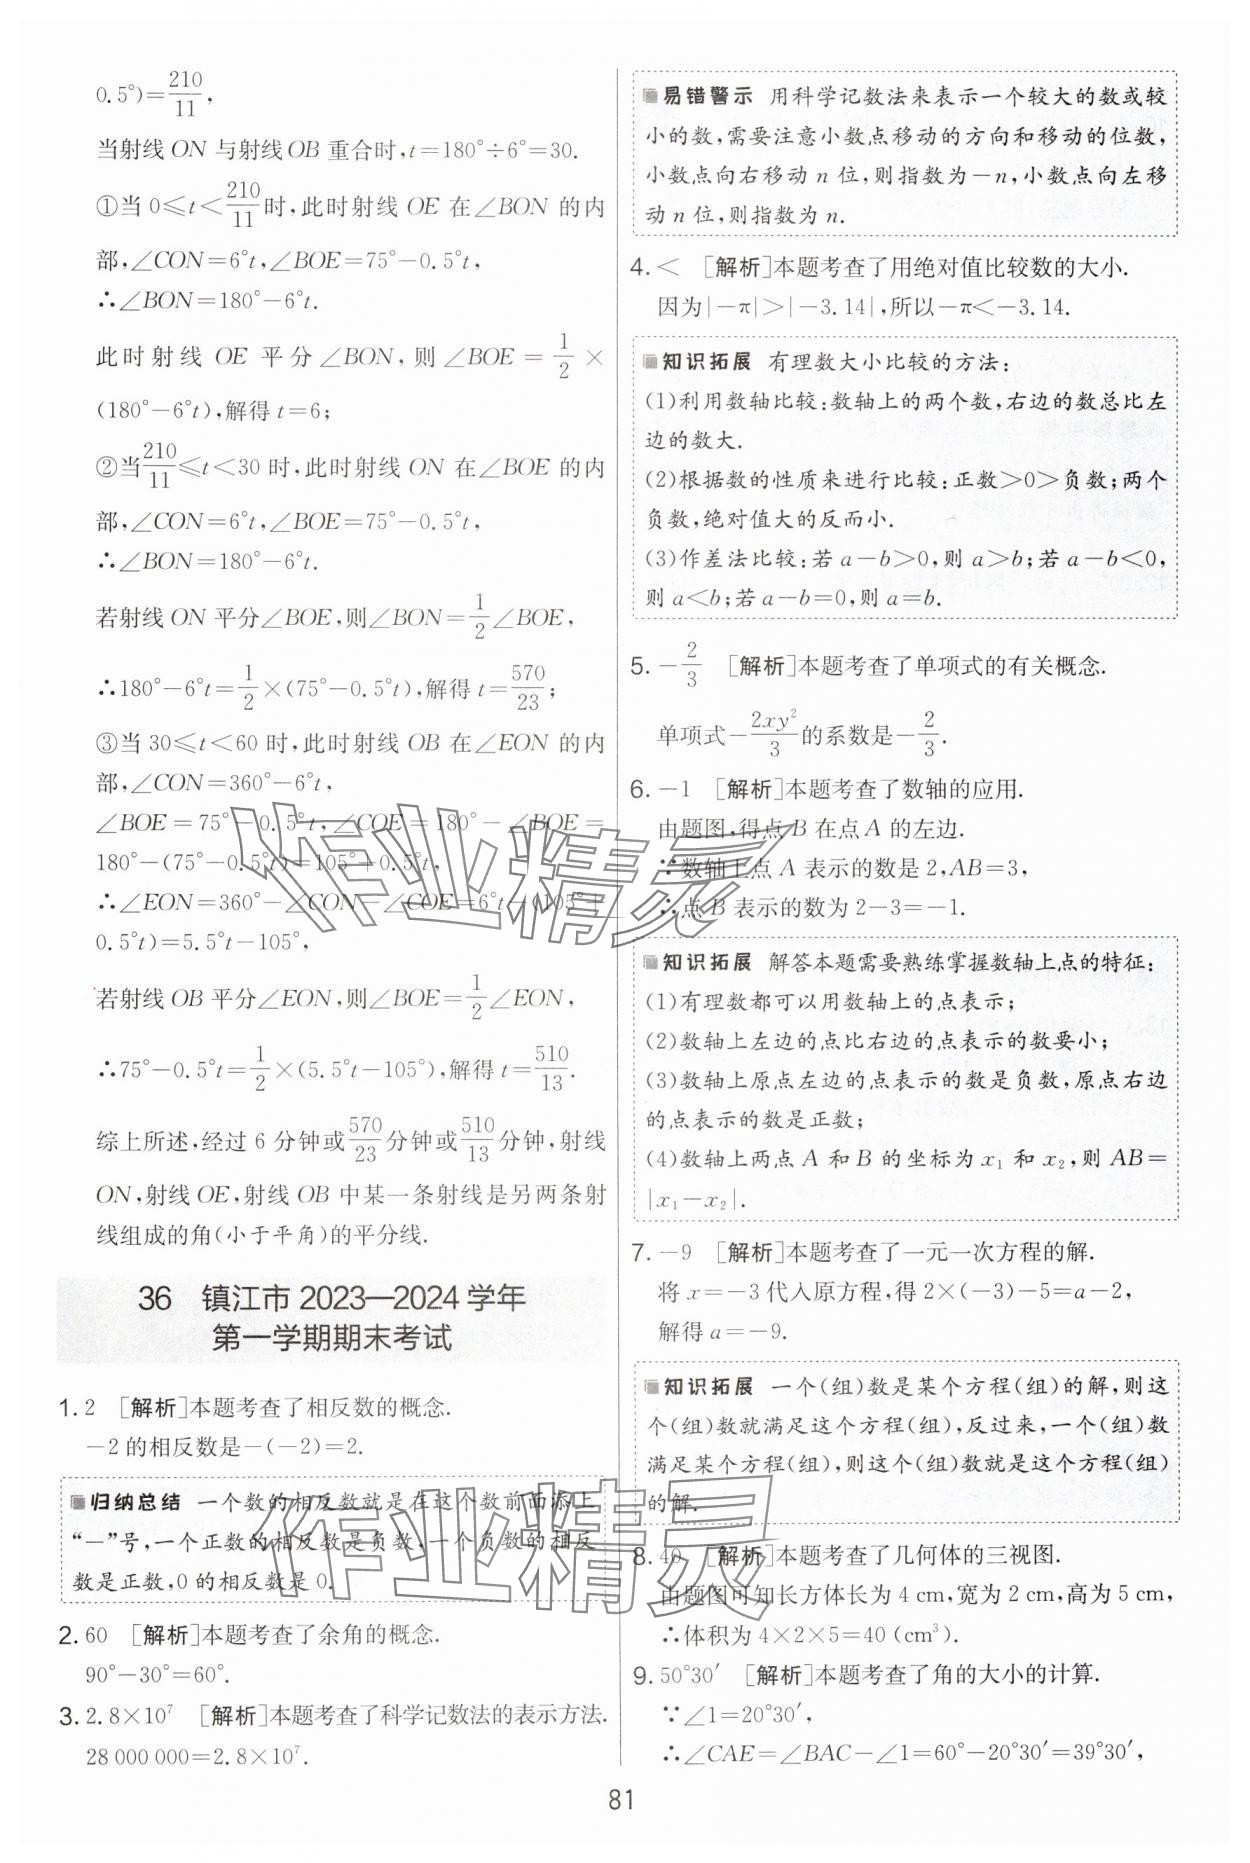 0.5°)=210/11,
当射线ON与射线OB重合时,t=180°÷6°=30.
①当0≤t<210/11时,此时射线OE在∠BON的内
部,∠CON=6°t,∠BOE=75°-0.5°t,
∴∠BON=180°-6°t.
此时射线OE平分∠BON,则∠BOE=1/2×
(180°-6°t),解得t=6;
②当210/11≤t<30时,此时射线ON在∠BOE的内
部,∠CON=6°t,∠BOE=75°-0.5°t,
∴∠BON=180°-6°t.
若射线ON平分∠BOE,则∠BON=1/2∠BOE,
∴180°-6°t=1/2×(75°-0.5°t),解得t=570/23;
③当30≤t<60时,此时射线OB在∠EON的内
部,∠CON=360°-6°t,
∠BOE=75°-0.5°t,∠COE=180°-∠BOE=
180°-(75°-0.5°t)=105°+0.5°t,
∴∠EON=360°-∠CON-∠COE=6°t-(105°+
0.5°t)=5.5°t-105°,
若射线OB平分∠EON,则∠BOE=1/2∠EON,
∴75°-0.5°t=1/2×(5.5°t-105°),解得t=510/13.
综上所述,经过6分钟或570/23分钟或510/13分钟,射线
ON,射线OE,射线OB中某一条射线是另两条射
线组成的角(小于平角)的平分线.
36 镇江市2023—2024学年
第一学期期末考试
1. 2 [解析]本题考查了相反数的概念.
-2的相反数是-(-2)=2.
归纳总结 一个数的相反数就是在这个数前面添上
“-”号,一个正数的相反数是负数,一个负数的相反
数是正数,0的相反数是0.
2. 60 [解析]本题考查了余角的概念.
90°-30°=60°.
3. 2.8×10⁷ [解析]本题考查了科学记数法的表示方法.
28 000 000=2.8×10⁷.
易错警示 用科学记数法来表示一个较大的数或较
小的数,需要注意小数点移动的方向和移动的位数,
小数点向右移动n位,则指数为-n,小数点向左移
动n位,则指数为n.
4. < [解析]本题考查了用绝对值比较数的大小.
因为|-π|>|-3.14|,所以-π<-3.14.
知识拓展 有理数大小比较的方法:
(1)利用数轴比较:数轴上的两个数,右边的数总比左
边的数大.
(2)根据数的性质来进行比较:正数>0>负数;两个
负数,绝对值大的反而小.
(3)作差法比较:若a-b>0,则a>b;若a-b<0,
则a<b;若a-b=0,则a=b.
5. -2/3 [解析]本题考查了单项式的有关概念.
单项式-2xy²/3的系数是-2/3.
6. -1 [解析]本题考查了数轴的应用.
由题图,得点B在点A的左边.
∵数轴上点A表示的数是2,AB=3,
∴点B表示的数为2-3=-1.
知识拓展 解答本题需要熟练掌握数轴上点的特征:
(1)有理数都可以用数轴上的点表示;
(2)数轴上左边的点比右边的点表示的数要小;
(3)数轴上原点左边的点表示的数是负数,原点右边
的点表示的数是正数;
(4)数轴上两点A和B的坐标为x₁和x₂,则AB=
|x₁-x₂|.
7. -9 [解析]本题考查了一元一次方程的解.
将x=-3代入原方程,得2×(-3)-5=a-2,
解得a=-9.
知识拓展 一个(组)数是某个方程(组)的解,则这
个(组)数就满足这个方程(组),反过来,一个(组)数
满足某个方程(组),则这个(组)数就是这个方程(组)
的解.
8. 40 [解析]本题考查了几何体的三视图.
由题图可知长方体长为4 cm,宽为2 cm,高为5 cm,
∴体积为4×2×5=40(cm³).
9. 50°30′ [解析]本题考查了角的大小的计算.
∵∠1=20°30′,
∴∠CAE=∠BAC-∠1=60°-20°30′=39°30′,
81
作业精灵
作业精灵